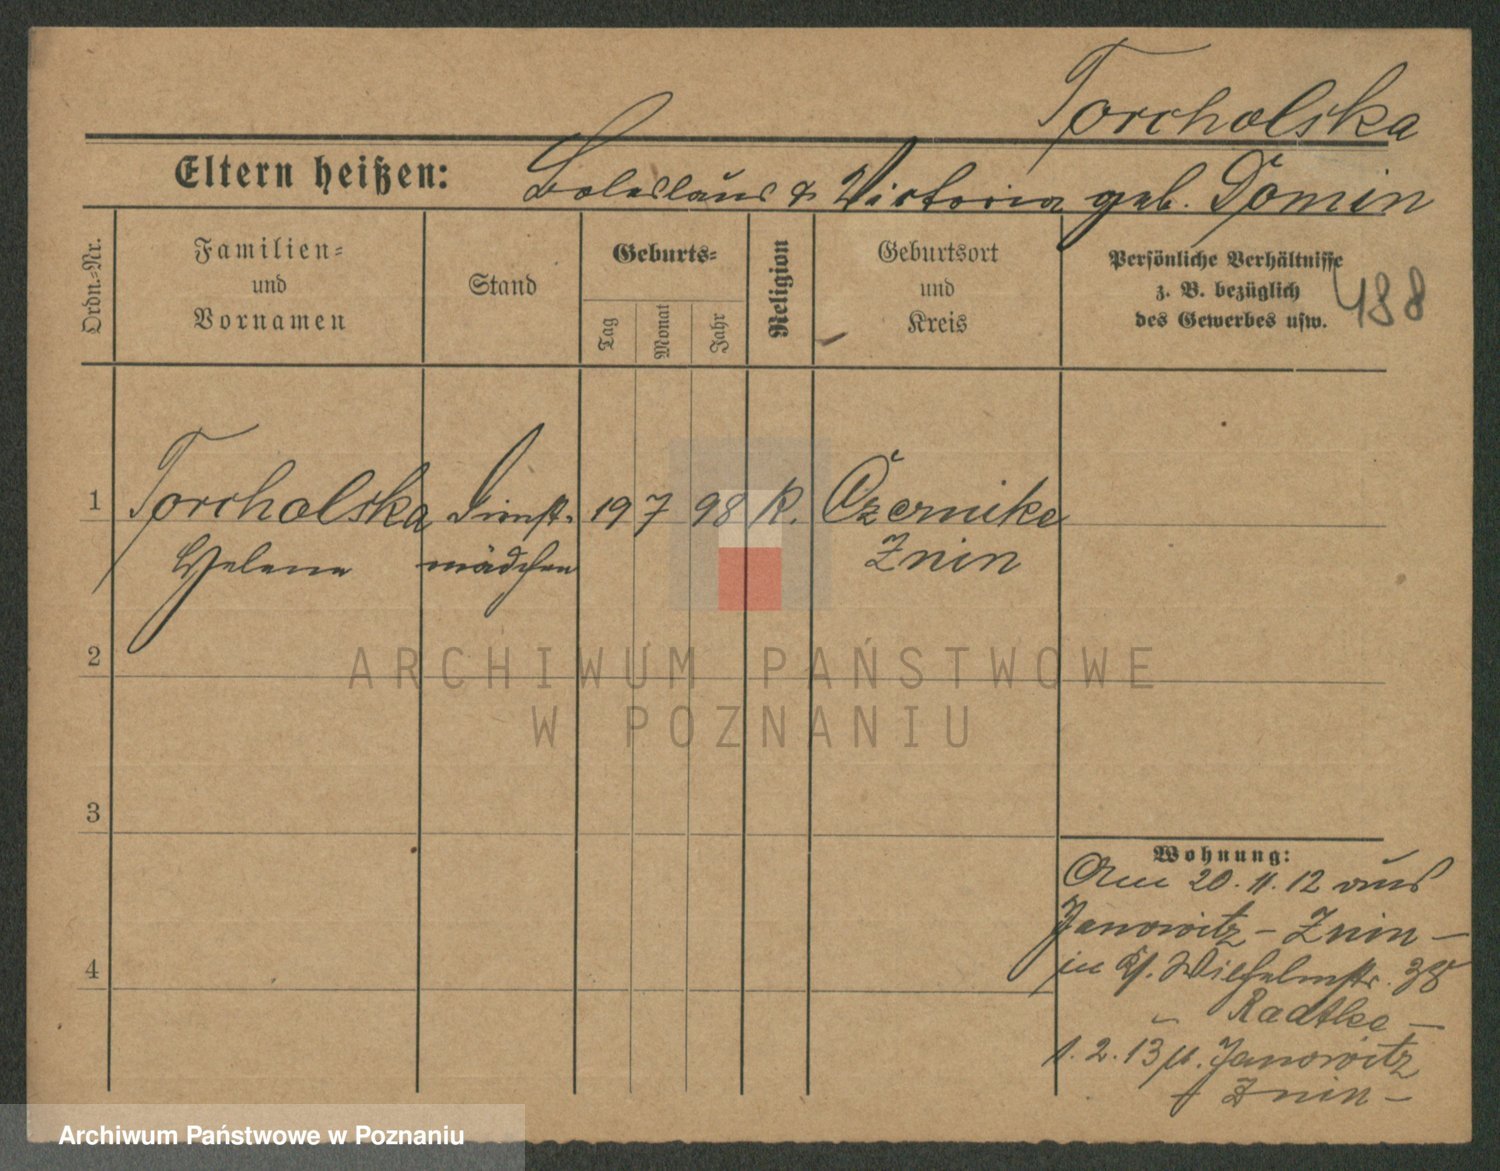 Torcholska
Eltern heißen: Boleslaus & Victoria geb. Domin
Ordn.-Nr.
Familien-
und
Vornamen
Stand
Geburts-
Tag
Monat
Jahr
Religion
Geburtsort
und
Kreis
Persönliche Verhältnisse
z. B. bezüglich
des Gewerbes usw.
488
1 Torcholska Dienst- 19 7 98 K. Czernike
Helene mädchen Znin
2
ARCHIWUM PAŃSTWOWE
W POZNANIU
3
4
Wohnung:
Am 20.11.12 aus
Janowitz - Znin -
in Wilhelmstr. 38
Radtke -
1.2.13 n. Janowitz
Znin -
Archiwum Państwowe w Poznaniu